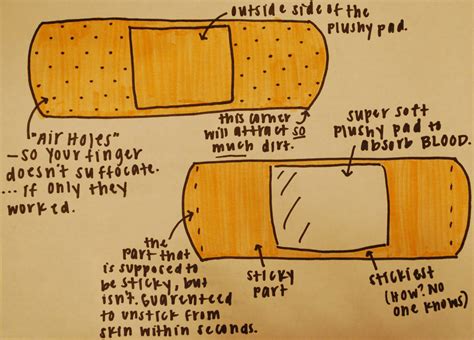 outside side of the
plushy pad.
"Air Holes"
- so your finger
doesn't suffocate.
... if only they
worked.
this corner
will attract so
much dirt.
super soft
plushy pad to
absorb BLOOD.
the
part that
is supposed to
be sticky, but
isn't. Guarenteed
to unstick from
skin within seconds.
sticky
part
stickiest
(How? No
one knows)